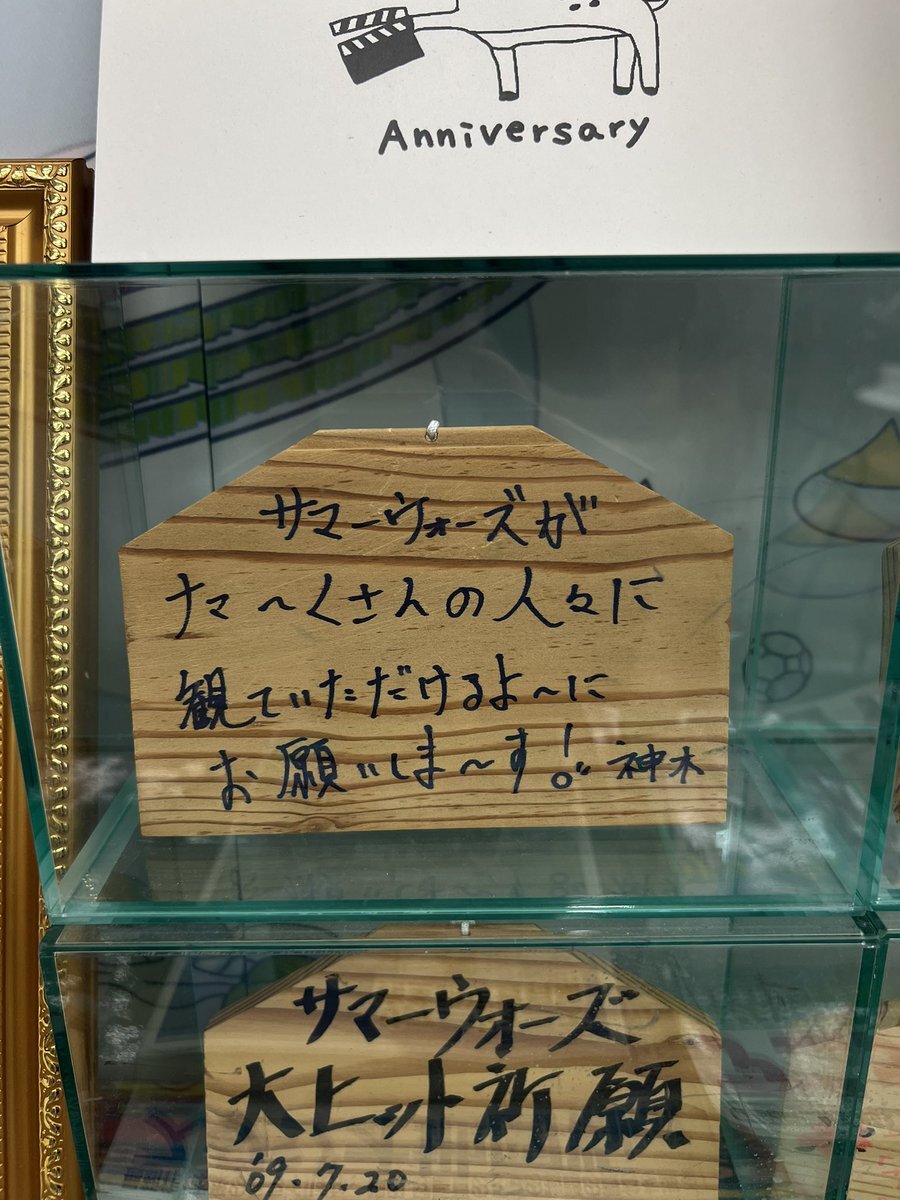 Anniversary
サマーウォーズが
ナマ〜くさんの人々に
観ていただけるよ〜に
お願いしま〜す! 神木
サマーウォーズ
大ヒット祈願
'09.7.20